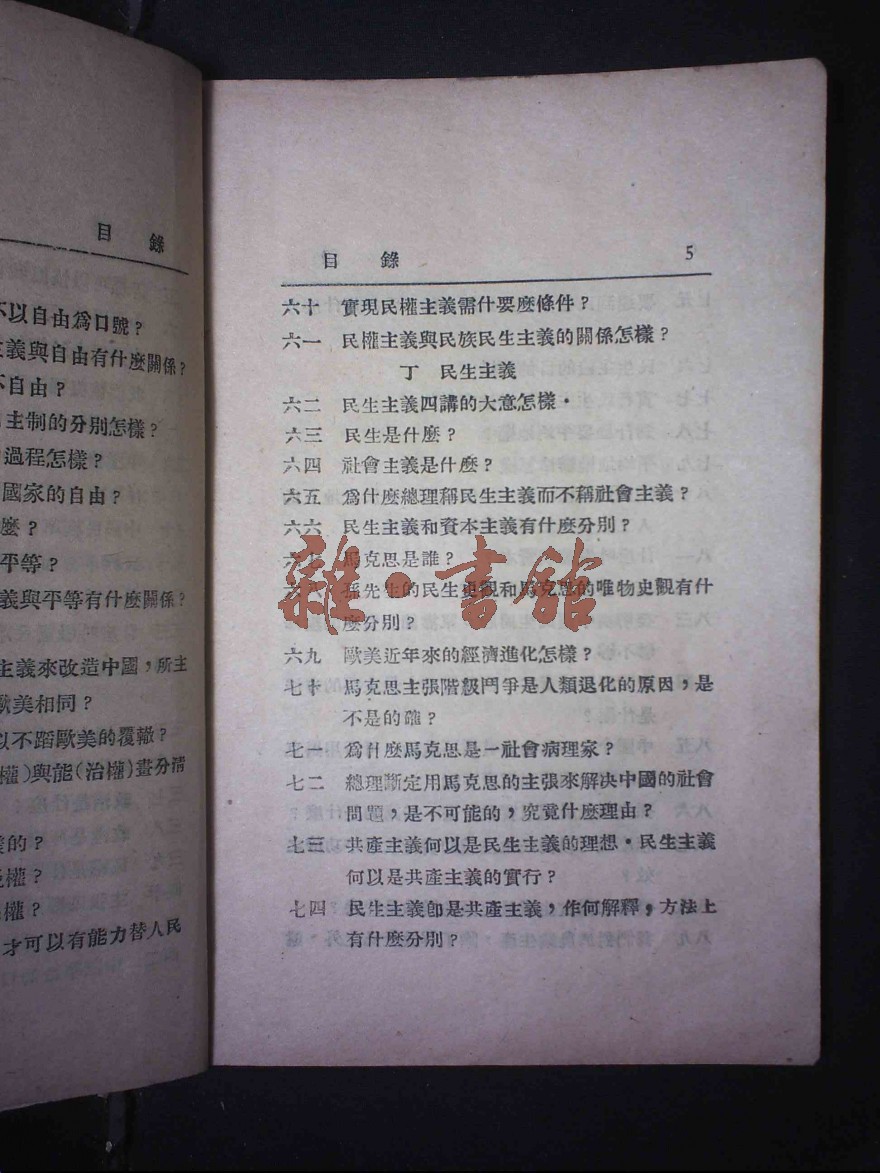 目 錄
不以自由爲口號？
主義與自由有什麼關係？
不自由？
主制的分别怎樣？
過程怎樣？
國家的自由？
麼？
平等？
義與平等有什麼關係？
主義來改造中國，所主
歐美相同？
以不蹈歐美的覆轍？
權）與能（治權）畫分清
的？
權？
權？
才可以有能力替人民
目 錄 5
六十 實現民權主義需什要麼條件？
六一 民權主義與民族民生主義的關係怎樣？
丁 民生主義
六二 民生主義四講的大意怎樣・
六三 民生是什麼？
六四 社會主義是什麼？
六五 爲什麼總理稱民生主義而不稱社會主義？
六六 民生主義和資本主義有什麼分别？
六七 馬克思是誰？
六八 孫先生的民生史觀和馬克思的唯物史觀有什
麼分别？
六九 歐美近年來的經濟進化怎樣？
七十 馬克思主張階級鬥爭是人類退化的原因，是
不是的確？
七一 爲什麼馬克思是一社會病理家？
七二 總理斷定用馬克思的主張來解決中國的社會
問題，是不可能的，究竟什麼理由？
七三 共產主義何以是民生主義的理想・民生主義
何以是共產主義的實行？
七四 民生主義卽是共產主義，作何解釋，方法上
有什麼分别？
雜・書館